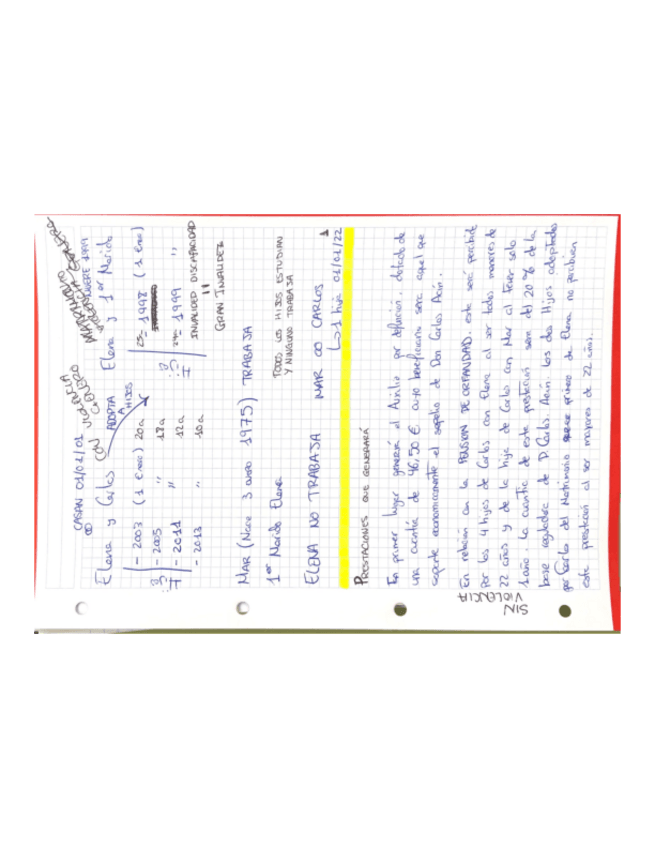 CASAN 01/02/01
CON VIOLENCIA GENERO
MUERE 1999
Elena y Carlos
ADOPTA A HIJOS
Elena y 1er Marido
- 2003 (1 Enero) 20a
- 2005 '' 18a
- 2011 '' 12a
- 2013 '' 10a
25 - 1998 (1 Ene)
24 - 1999 ''
INVALIDED DISCAPACIDAD
GRAN INVALIDEZ
MAR (Nace 3 1975) TRABAJA
1er Marido Elena
TODOS LOS HIJOS ESTUDIAN
Y NINGUNO TRABAJA
ELENA NO TRABAJA MAR CARLOS
1 hija 01/01/22
1
PRESTACIONES QUE GENERARÁ
En primer lugar generará el Auxilio por defunción dotado de
una cuantía de 46,50 € cuyo beneficiario será aquel que
soporte económicamente el sepelio de Don Carlos Asín.
SIN VIOLENCIA
En relación con la PENSION DE ORFANDAD, esta será percibida
por los 4 hijos de Carlos con Elena al ser todos menores de
22 años y de la hija de Carlos con Mar al tener solo
1 año. La cuantía de esta prestación será del 20 % de la
base reguladora de D. Carlos. Asín. Los dos Hijos adoptados
por Carlos del Matrimonio primero de Elena no perciben
esta prestación al ser mayores de 22 años.